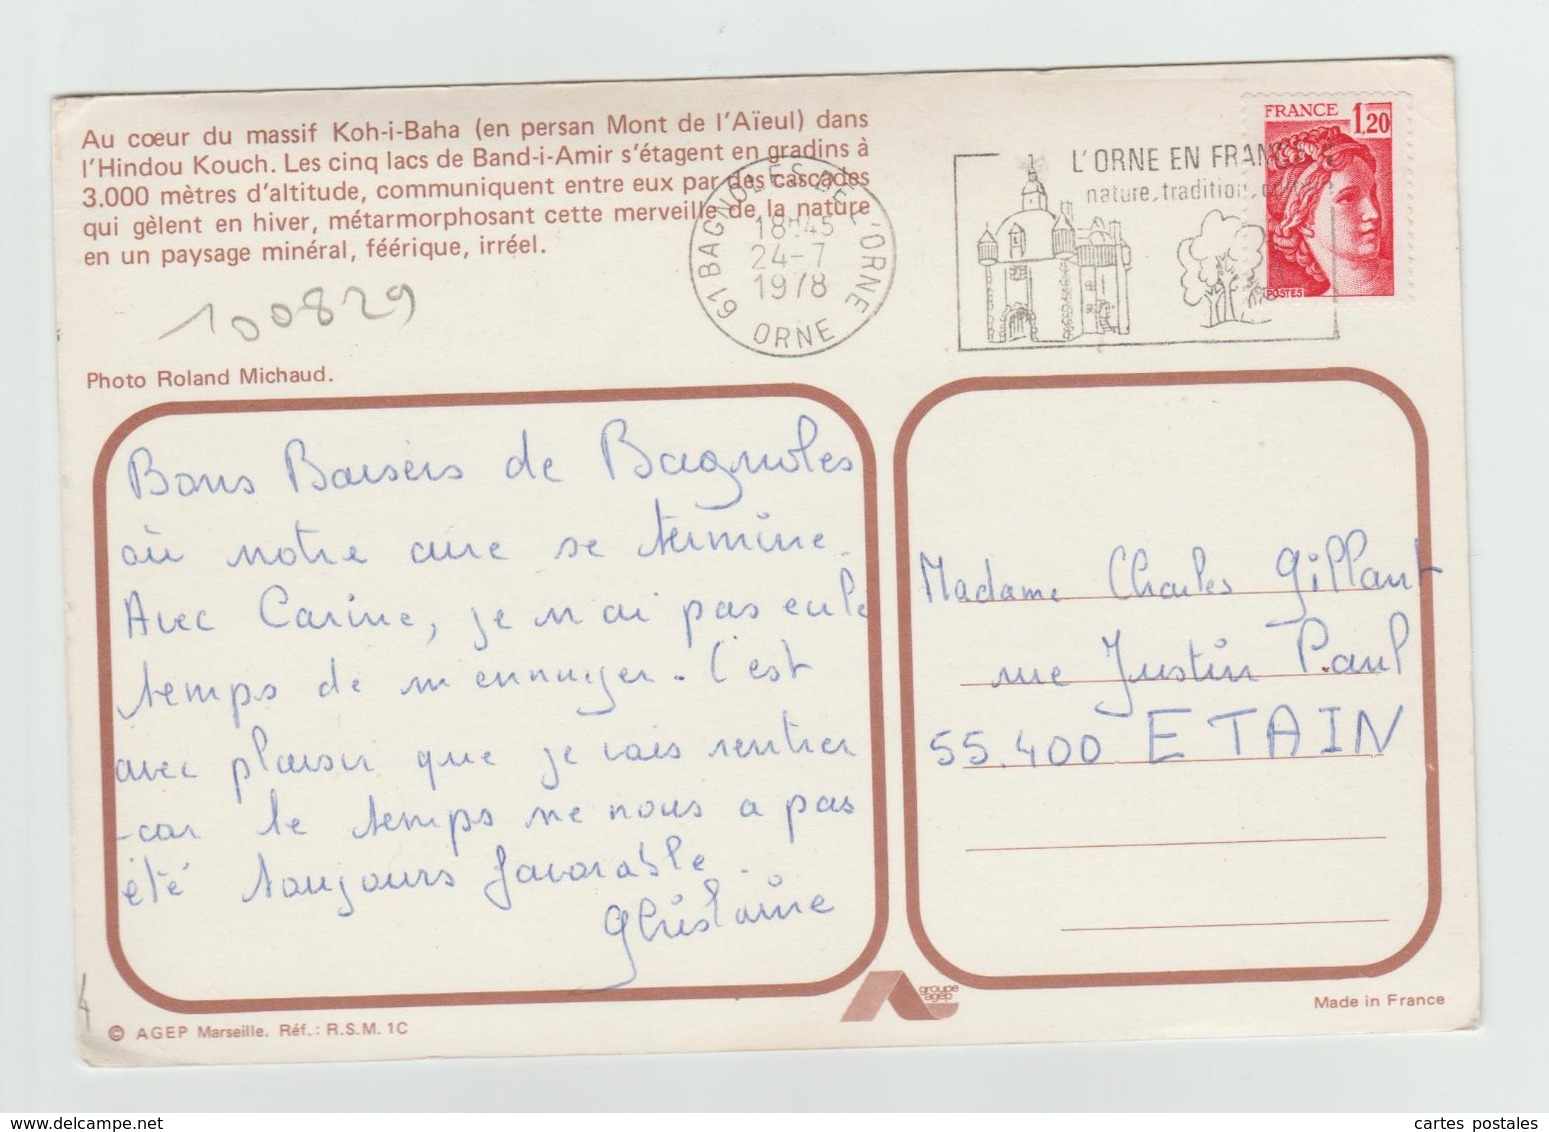 Au cœur du massif Koh-i-Baha (en persan Mont de l'Aïeul) dans
l'Hindou Kouch. Les cinq lacs de Band-i-Amir s'étagent en gradins à
3.000 mètres d'altitude, communiquent entre eux par des cascades
qui gèlent en hiver, métarmorphosant cette merveille de la nature
en un paysage minéral, féérique, irréel.
100829
Photo Roland Michaud.
61 BAGNOLES DE L'ORNE
18H45
24-7
1978
ORNE
L'ORNE EN FRAN
nature, tradition,
FRANCE 1,20
POSTES
Bons Baisers de Bagnoles
où notre cure se termine.
Avec Carine, je n'ai pas eu le
temps de m'ennuyer. C'est
avec plaisir que je vais rentrer
car le temps ne nous a pas
été toujours favorable.
Ghislaine
Madame Charles Gillant
rue Justin Paul
55.400 ETAIN
4
© AGEP Marseille. Réf.: R.S.M. 1C
groupe
agep
Made in France
cartes postales